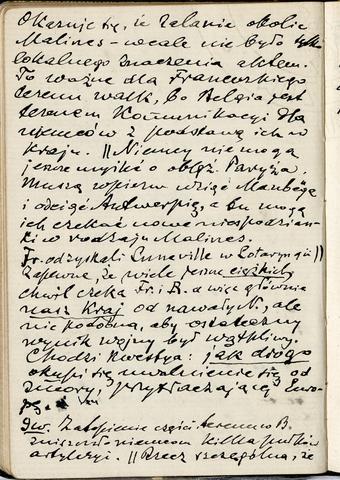 Okazuje się, że zalanie okolic
Malines – wcale nie było tylko
lokalnego znaczenia aktem.
To ważne dla Francuskiego
terenu walk, bo Belgia jest
terenem Komunikacyi dla
niemców z podstawą ich w
kraju. || Niemcy nie mogą
jeszcze myśleć o oblęż. Paryża.
Muszą wpierw wziąć Maubege
i odciąć Antwerpię, a tu mogą
ich czekać nowe niespodzian-
ki w rodzaju Malines.
Fr. odzyskali Luneville w Lotaryngii ||
Zapewne, że wiele jeszcze ciężkich
chwil czeka Fr. i B. a więc głównie
nasz Kraj od nawały N., ale
nie podobna, aby ostateczny
wynik wojny był wątpliwy.
Chodzi Kwestya: jak drogo
okupi się uwolnienie się od
zmory, przytłaczającej Euro-
pę
9w. Zatopienie części terenu w B.
zniszczyło niemcom kilka pułków
artyleryi. || Rzecz szczególna, że